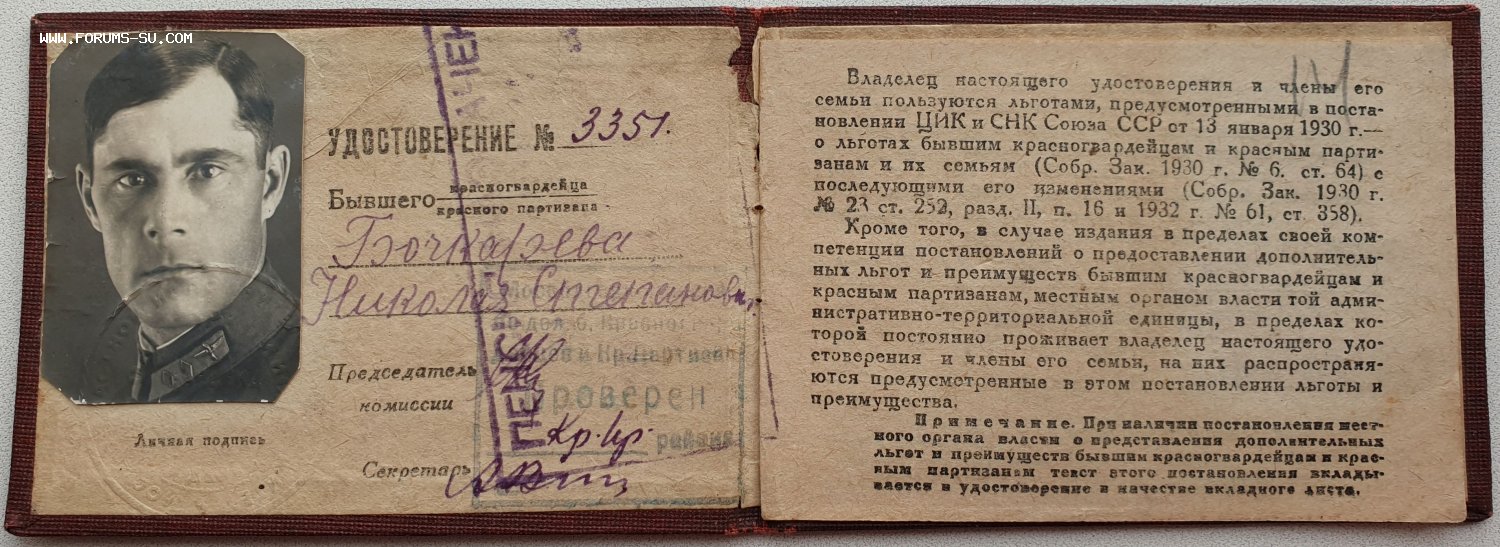 www.forums-su.com
УДОСТОВЕРЕНИЕ № 3351.
Бывшего красногвардейца
красного партизана
Бочкарева
Николая Степанович
Председатель
комиссии
Личная подпись
Секретарь
Кр. Пр.
Проверен
района
ПЕНС
Владелец настоящего удостоверения и члены его
семьи пользуются льготами, предусмотренными в поста-
новлении ЦИК и СНК Союза ССР от 13 января 1930 г.—
о льготах бывшим красногвардейцам и красным парти-
занам и их семьям (Собр. Зак. 1930 г. № 6. ст. 64) с
последующими его изменениями (Собр. Зак. 1930 г.
№ 23 ст. 252, разд. II, п. 16 и 1932 г. № 61, ст. 358).
Кроме того, в случае издания в пределах своей ком-
петенции постановлений о предоставлении дополнитель-
ных льгот и преимуществ бывшим красногвардейцам и
красным партизанам, местным органом власти той адми-
нистративно-территориальной единицы, в пределах ко-
торой постоянно проживает владелец настоящего удо-
стоверения и члены его семьи, на них распространя-
ются предусмотренные в этом постановлении льготы и
преимущества.
Примечание. При наличии постановления мест-
ного органа власти о представлении дополнительных
льгот и преимуществ бывшим красногвардейцам и крас-
ным партизанам текст этого постановления вклады-
вается в удостоверение в качестве вкладного листа.